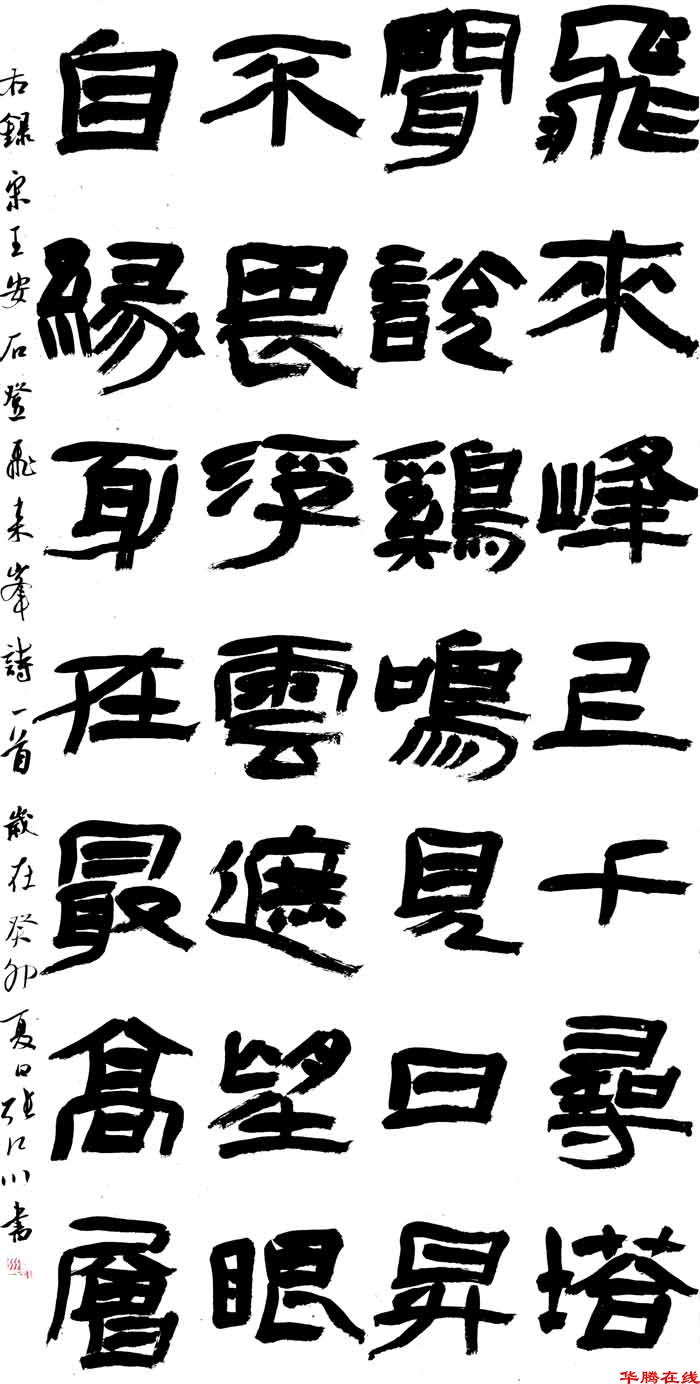 飛來峰上千尋塔
聞說鷄鳴見日昇
不畏浮雲遮望眼
自緣身在最高層
右錄宋王安石登飛来峯詩一首 歲在癸卯夏日江川書
华腾在线